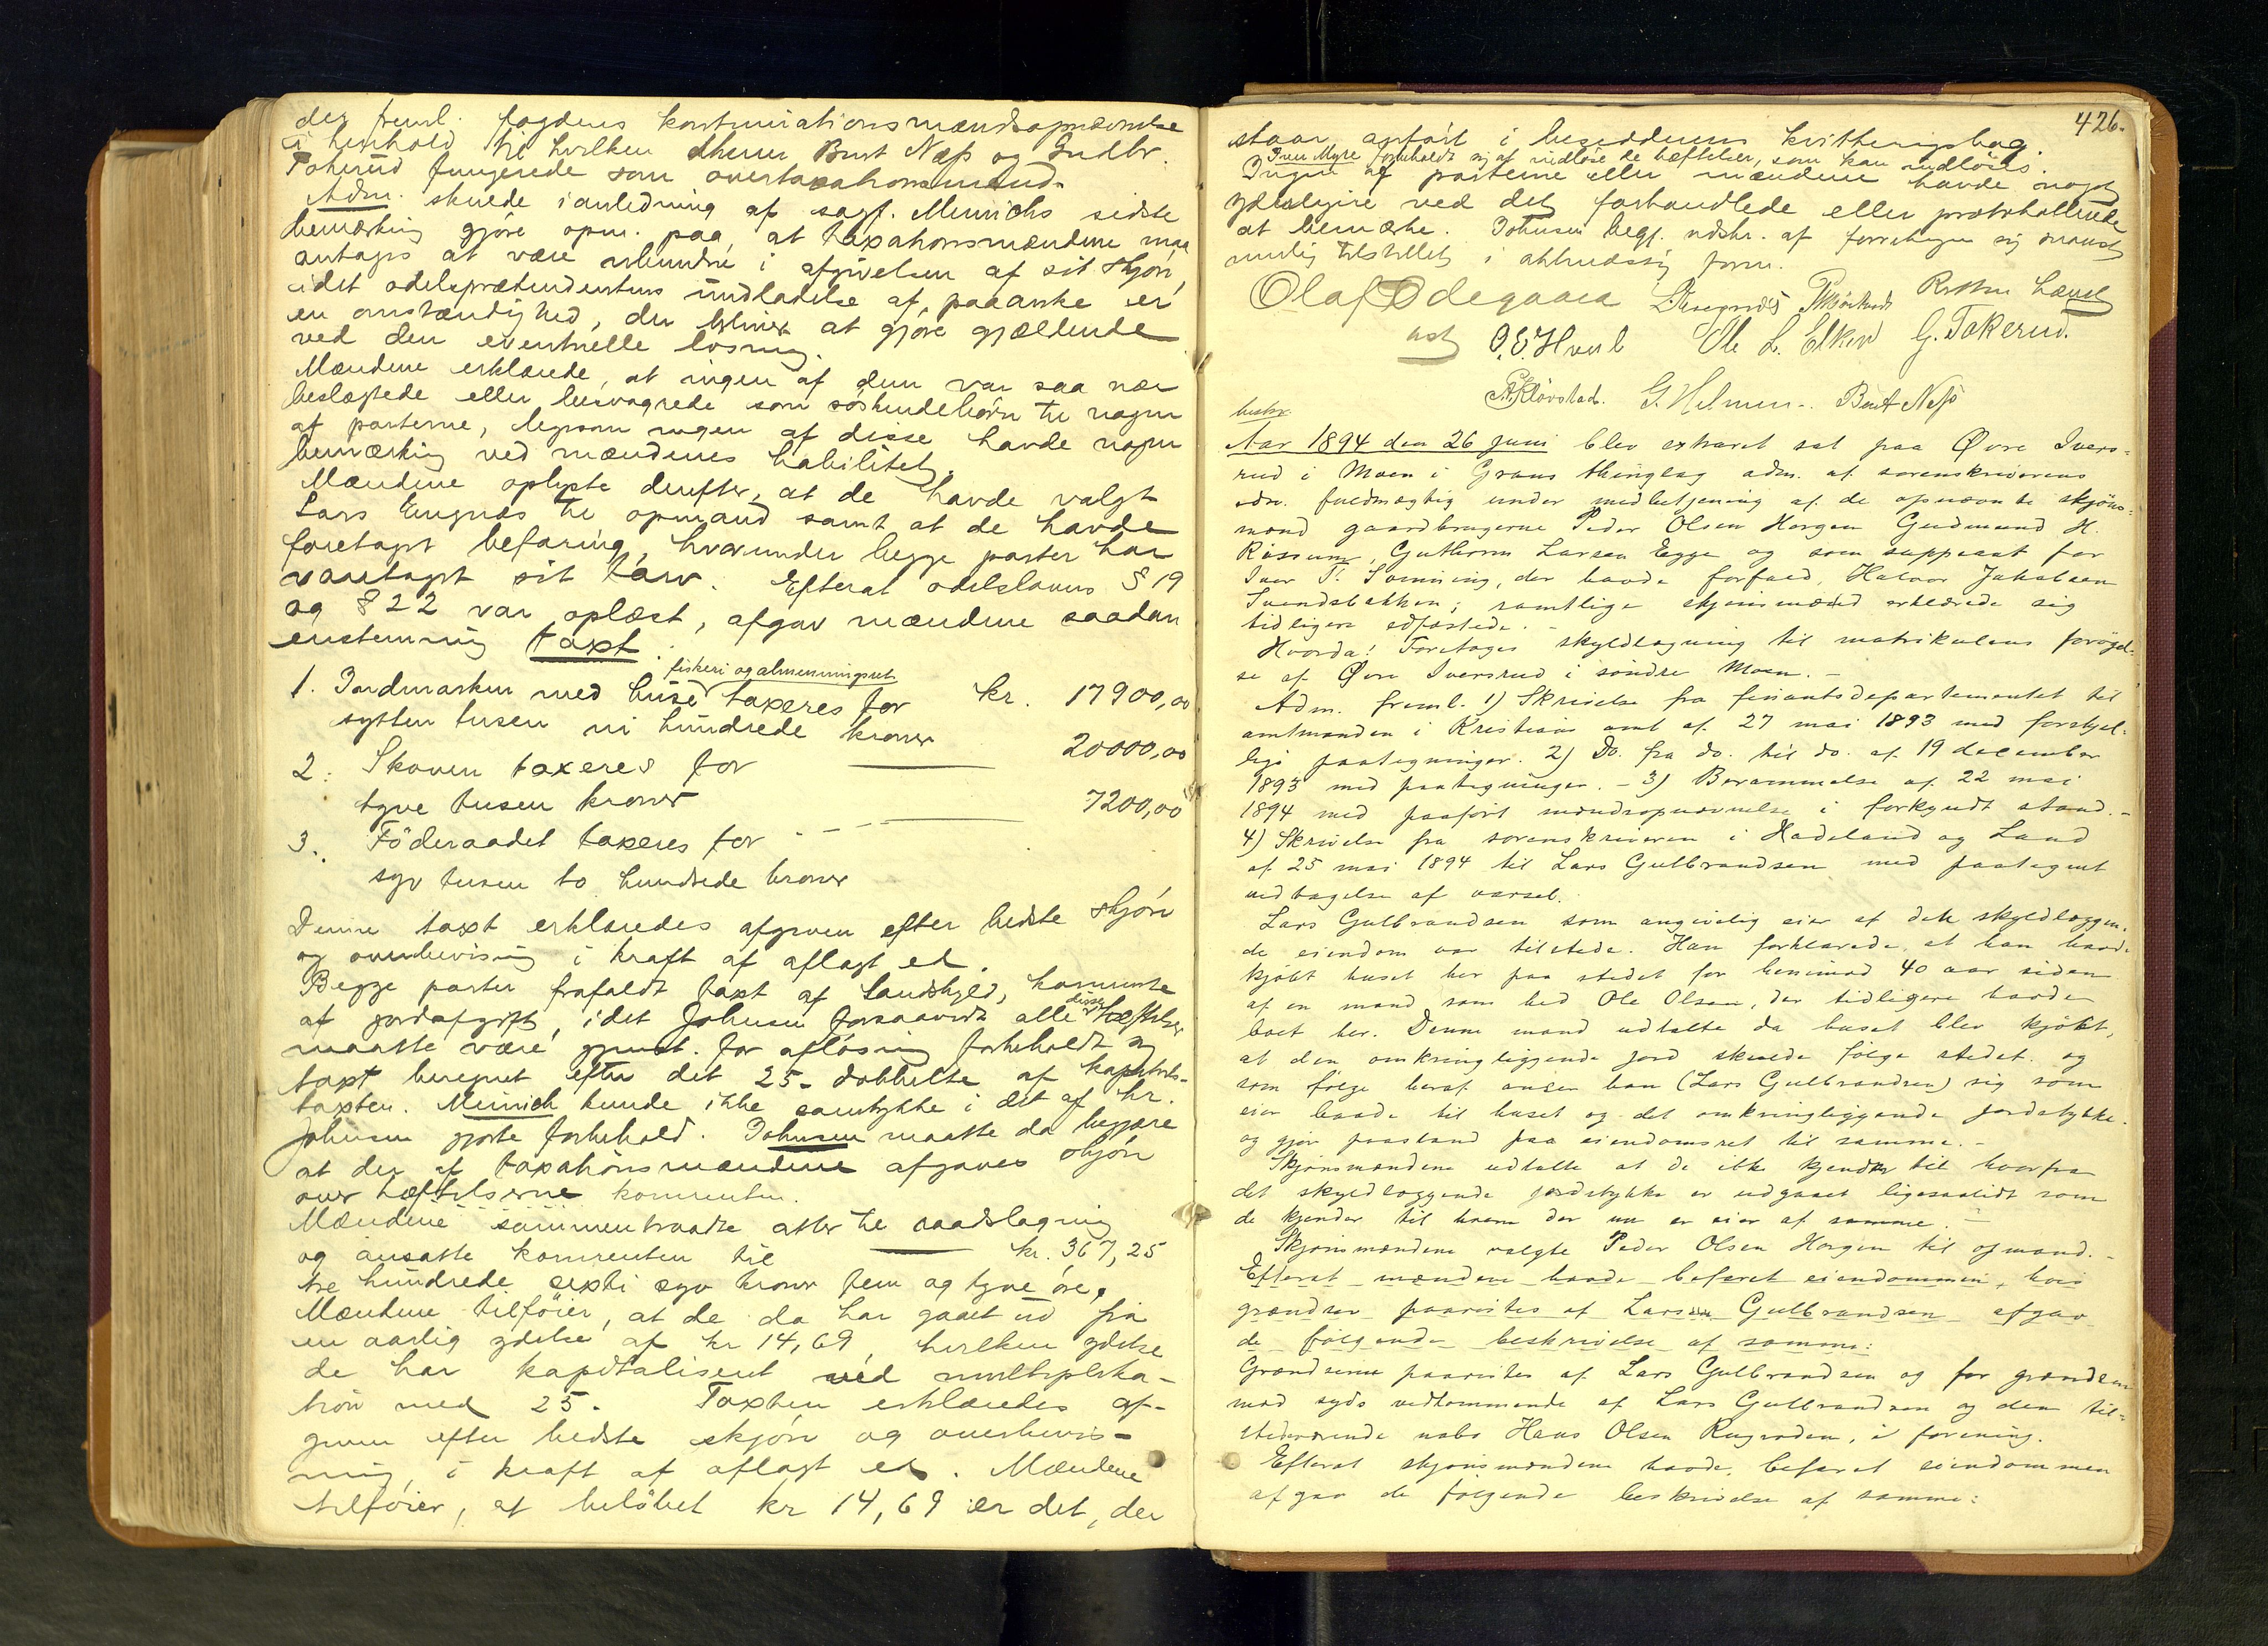 der freml. fogdens kontinuationsmændsopnævnelse
i henhold til hvilken dherrer Bent Næss og Gudbr.
Tokerud fungerede som overtaxationsmænd.
Adm. skulde i anledning af sagf. Meinichs sidste
bemærkning gjöre opm. paa, at taxationsmændene maa
antages at være ubundne i afgivelsen af sit skjön,
idet odelsprætendentens undladelse af paaanke er
en omstændighed, der bliver at gjöre gjældende
ved den eventuelle losning.
Mændene erklærede, at ingen af dem var saa nær
beslægtede eller besvogrede som söskendebörn til nogen
af parterne, ligesom ingen af disse havde nogen
bemærkning ved mændenes habilitet.
Mændene oplyste derefter, at de havde valgt
Lars Engnæs til opmand samt at de havde
foretaget befaring, hvorunder begge parter har
varetaget sit tarv. Efterat odelslovens § 19
og § 22 var oplæst, afgav mændene saadan
enstemmig taxt:
fiskeri og almenningsret
1. Jordmarken med huse taxeres for kr. 17900,00
sytten tusen ni hundrede kroner
2. Skoven taxeres for 20000,00
tyve tusen kroner
3. Föderaadet taxeres for 7200,00
syv tusen to hundrede kroner
Denne taxt erklæredes afgiven efter bedste skjön
og overbevisning i kraft af aflagt ed.
Begge parter frafaldt taxt af Landskyld, kornrente
disse
af jordafgift, idet Johnsen forsaavidt alle hæftelser
maatte være gjenst. for aflösning forbeholdt sig
taxt beregnet efter det 25-dobbelte af kapitels-
taxten. Meinich kunde ikke samtykke i det af hr.
Johnsen gjorte forbehold. Johnsen maatte da begjære
at der af taxationsmændene afgaves skjön
over hæftelserne kornrenten.
Mændene sammentraadte atter til raadslagning
og ansatte kornrenten til kr. 367,25
tre hundrede sexti syv kroner fem og tyve öre.
Mændene tilföier, at de da har gaaet ud fra
en aarlig ydelse af kr 14,69, hvilken ydelse
de har kapitaliseret ved multiplika-
tion med 25. Taxten erklæredes af-
given efter bedste skjön og overbevis-
ning, i kraft af aflagt ed. Mændene
tilföier, at belöbet kr 14,69 er det, der
426.
staar anfört i besidderens kvitteringsbog.
Iver Myre forbeholdt sig at indlöse de hæftelser, som kan indlöses.
Ingen af parterne eller mændene havde noget
yderligere ved det forhandlede eller protokollerede
at bemærke. Johnsen begj. udskr. af forretningen sig snarest
mulig tilstillet i akkmæssig form.
Olaf Ødegaard L. Engnæs
ast O. E. Hval Ole L. Elken G. Tokerud.
P. Klövstad. G. Helmen. Bent Næss
beskr.
Aar 1894 den 26 juni blev extraret sat paa Øvre Ivers-
rud i Moen i Grans thinglag adm. af sorenskriverens
edsv. fuldmægtig under medbetjening af de opnævnte skjöns-
mænd gaardbrugerne Peder Olsen Horgen Gudmund H.
Rössum, Guthorm Larsen Egge og som suppleant for
Iver P. Sorning, der havde forfald, Halvor Jakobsen
Svendsbakken; samtlige skjönsmænd erklærede sig
tidligere edfæstede. -
Hvorda! Foretoges skyldlægning til matrikulens forögel-
se af Øvre Iversrud i söndre Moen. -
Adm. freml. 1) Skrivelse fra finantsdepartementet til
amtmanden i Kristians amt af 27 mai 1893 med forskjel-
lige paategninger. 2) Do. fra do. til do. af 19 december
1893 med paategninger. - 3) Berammelse af 22 mai
1894 med paafört mændsopnævnelse i forkyndt stand. -
4) Skrivelse fra sorenskriveren i Hadeland og Land
af 25 mai 1894 til Lars Gulbrandsen med paategnet
vedtagelse af varsel.
Lars Gulbrandsen som angivelig eier af dette skyldlæggen-
de eiendom var tilstede. Han forklarede, at han havde
kjöbt huset her paa stedet for henimod 40 aar siden
af en mand som hed Ole Olsen, der tidligere havde
boet her. Denne mand udtalte da huset blev kjöbt,
at den omkringliggende jord skulde fölge stedet og
som fölge heraf anser han (Lars Gulbrandsen) sig som
eier baade til huset og det omkringliggende jordstykke.
og gjör paastand paa eiendomsret til samme. -
Skjönsmændene udtalte at de ikke kjender til hvorfra
det skyldlæggende jordstykke er udgaaet ligesaalidt som
de kjender til hvem der nu er eier af samme. -
Skjönsmændene valgte Peder Olsen Horgen til opmand. -
Efterat mændene havde befaret eiendommen, hvis
grændser paavistes af Lars Gulbrandsen afgav
de fölgende beskrivelse af samme:
Grændserne paavistes af Lars Gulbrandsen og for grændsen
mod syds vedkommende af Lars Gulbrandsen og den til-
stedeværende nabo Hans Olsen Rugroden, i forening.
Efterat skjönsmændene havde befaret eiendommen
afgav de fölgende beskrivelse af samme: